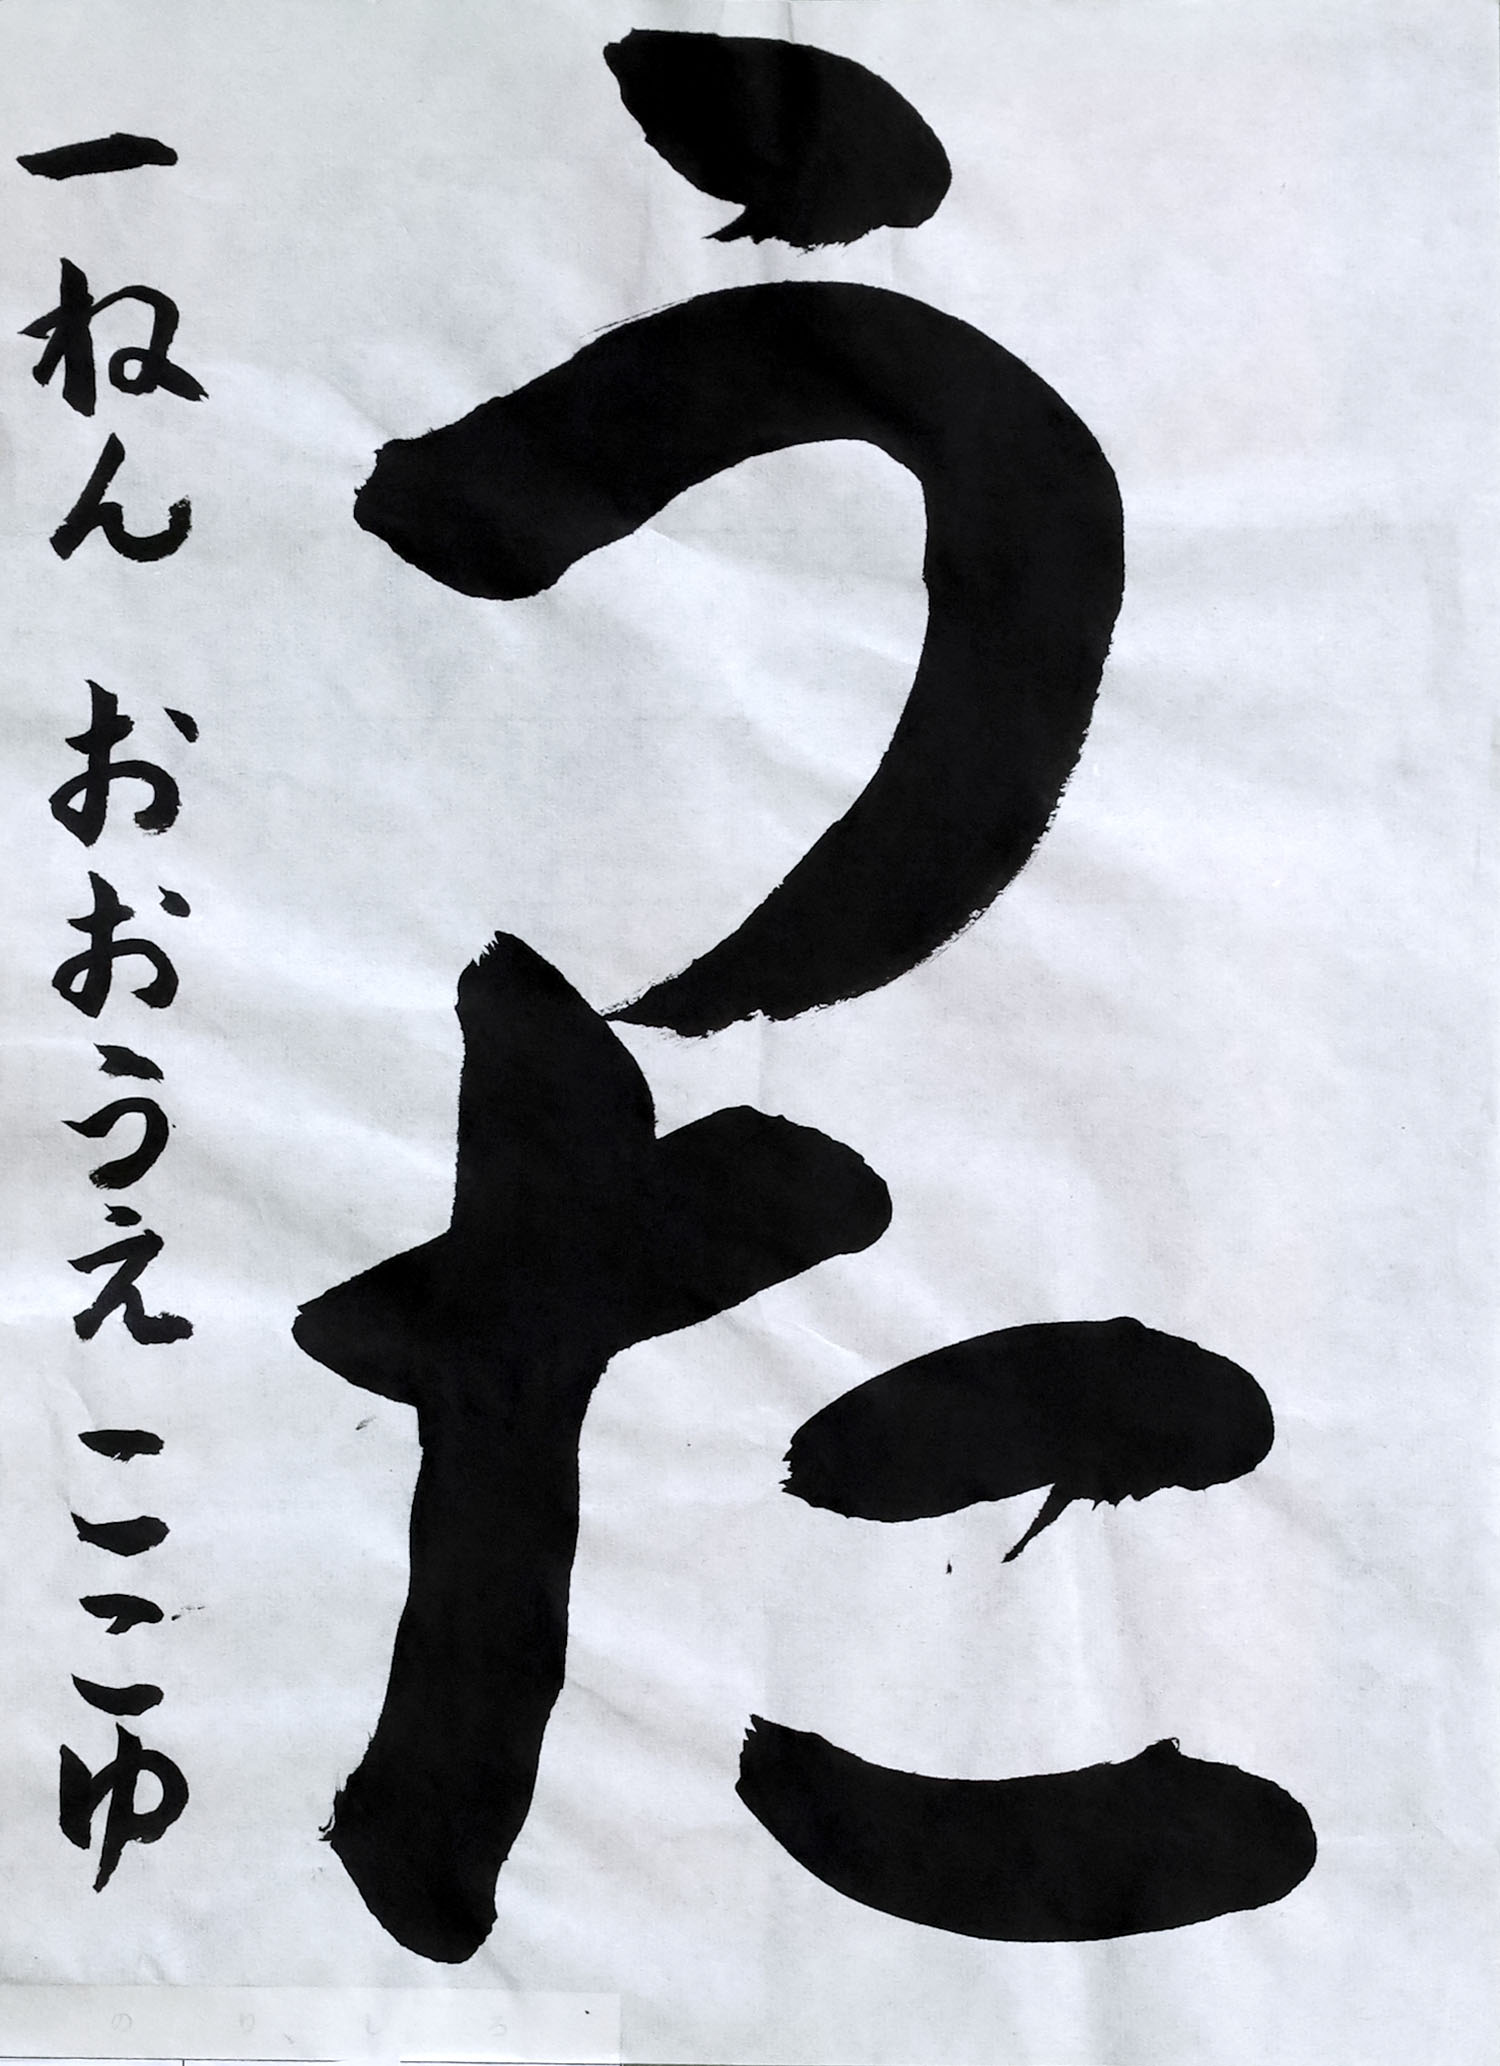 うた
一ねん おおうえ こころゆ